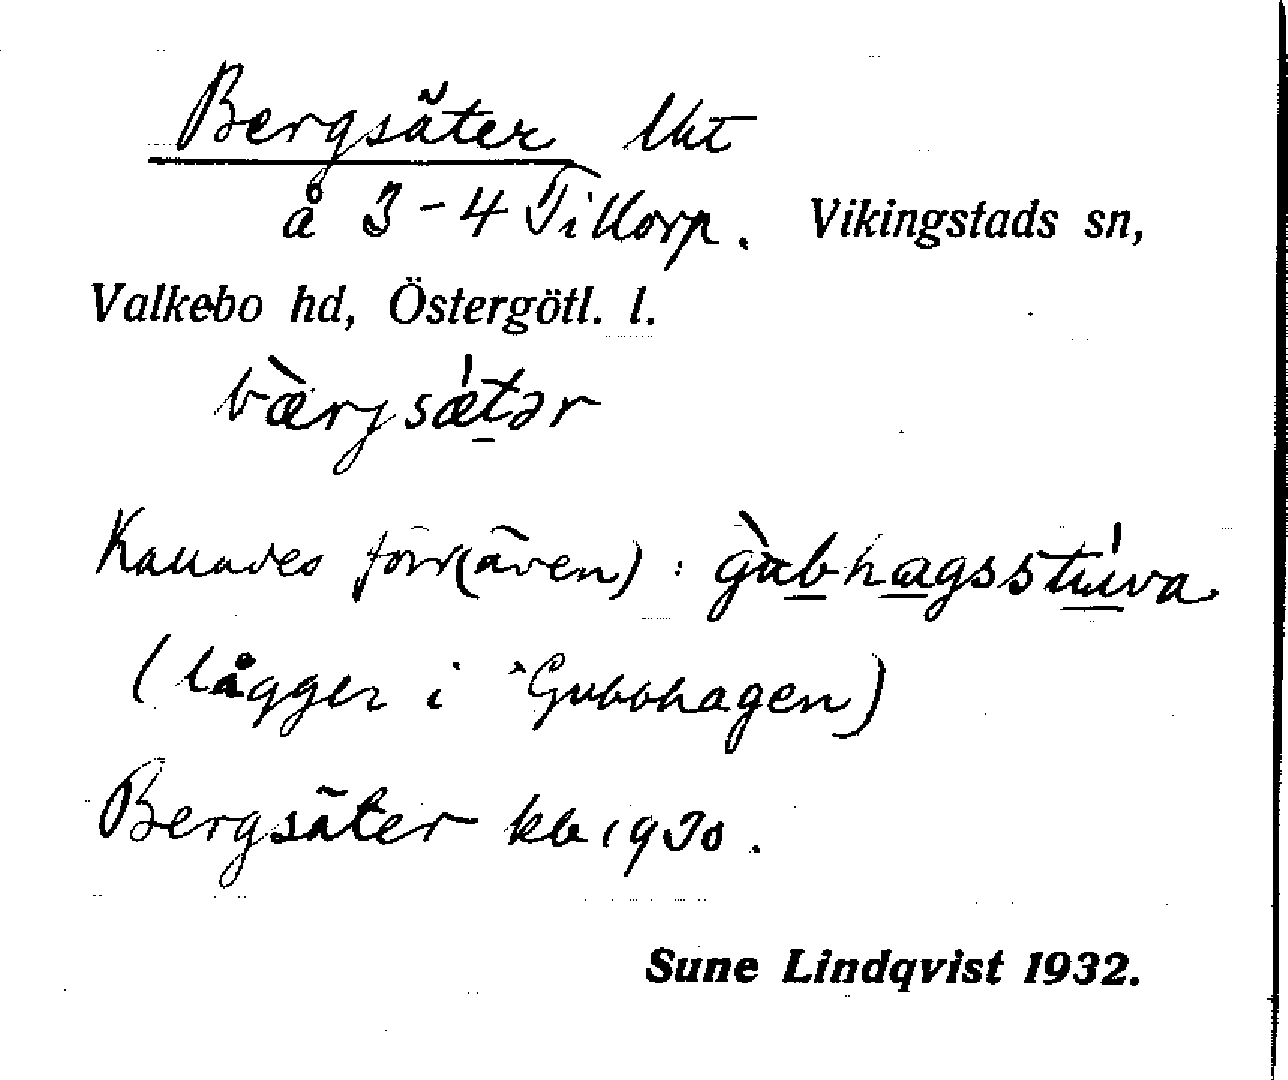 Bergsäter lht
å 3-4 Tillorp. Vikingstads sn,
Valkebo hd, Östergötl. l.
bæ̀rjsæ̍tər
Kallades förr (även): gùbhagsstu̍va
(lågger i Gubbhagen)
Bergsäter kb 1930.
Sune Lindqvist 1932.